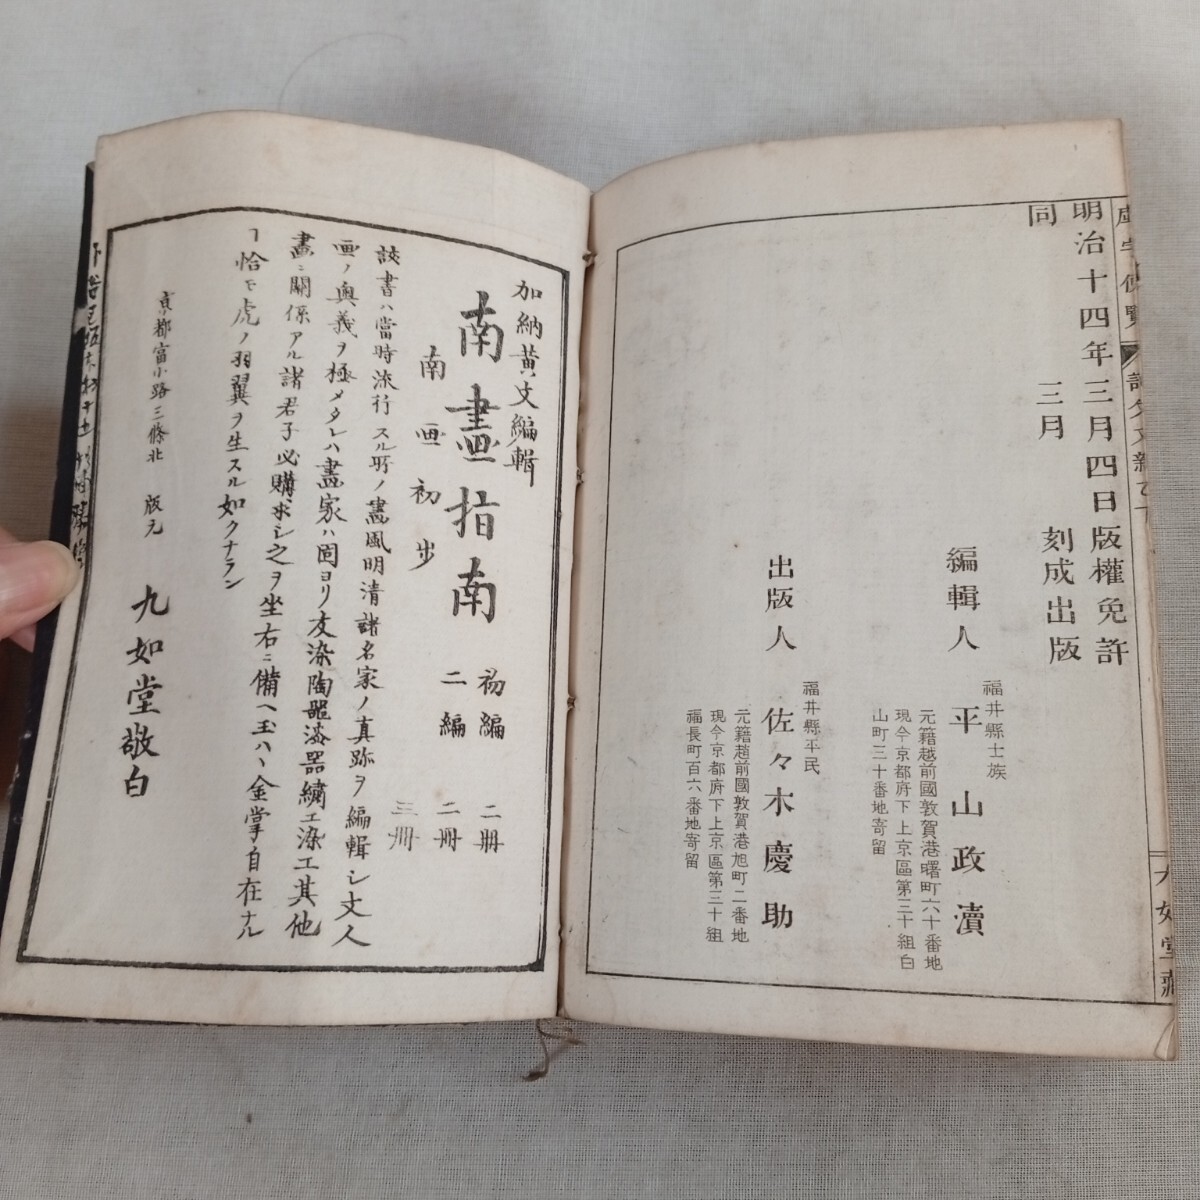 明治十四年三月四日版權免許
同 三月 刻成出版
編輯人
福井縣士族
平山政瀆
元籍越前國敦賀港曙町六十番地
現今京都府下上京區第三十組白
山町三十番地寄留
出版人
福井縣平民
佐々木慶助
元籍越前國敦賀港旭町二番地
現今京都府下上京區第三十組
福長町百六番地寄留
加納黄文編輯
南畫指南 初編 二冊
二編 二冊
南画初歩 三冊
該書ハ當時流行スル所ノ畫風明清諸名家ノ真跡ヲ編輯シ文人
画ノ奥義ヲ極メタレハ畫家ハ固ヨリ友染陶器漆器繍工染工其他
畫ニ關係アル諸君子必購求シ之ヲ坐右ニ備ヘ玉ハヽ金掌自在ナル
ヿ恰モ虎ノ羽翼ヲ生スル如クナラン
京都富小路三條北 版元 九如堂敬白